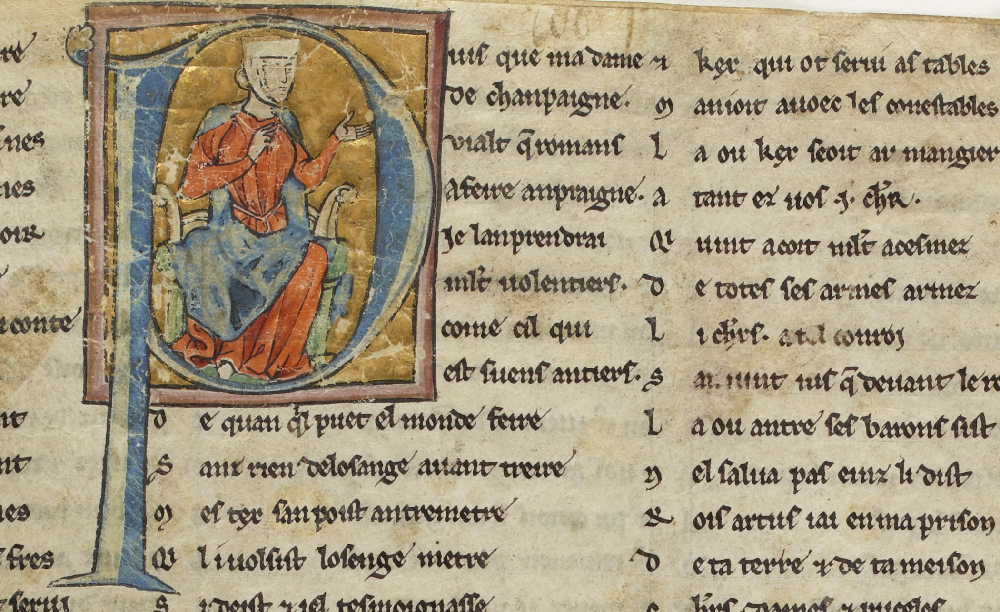 re
re
nes
nes
oir
conte
nt
nt
nes
fres
seruj
Puis que ma dame
de chanpaigne.
vialt q̄ romans
A feire anpraigne.
Je lanprendrai
ml̃t uolentiers.
come cil qui
est suens antiers.
De quan qͥl puet el monde feire
Sanz rien de losange auant treire
Mes tex san poist antremetre
Qi li uolsist losenge metre
Si deist ⁊ iel tesmoignasse
⁊ kex qui ot serui as tables
Manioit auoec les conestables
La ou kex seoit au mangier
Atant ez uos .j. ch̃r.
Qui uint a cort ml̃t acesmez
De totes ses armes armez
Li ch̃rs. a tel conroj
San uint ius q̄ deuant le ro
La ou antre ses barons sist
Nel salua pas einz li dist
Rois artus iai en ma prison
De ta terre ⁊ de ta meison
Ch̃rs dames ⁊ puceles